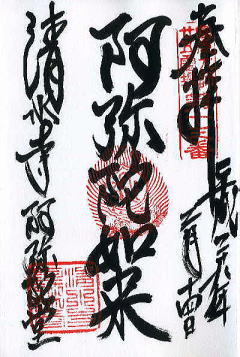 奉拝
平成二六年
二月十四日
阿弥陀如来
清水寺阿弥陀堂